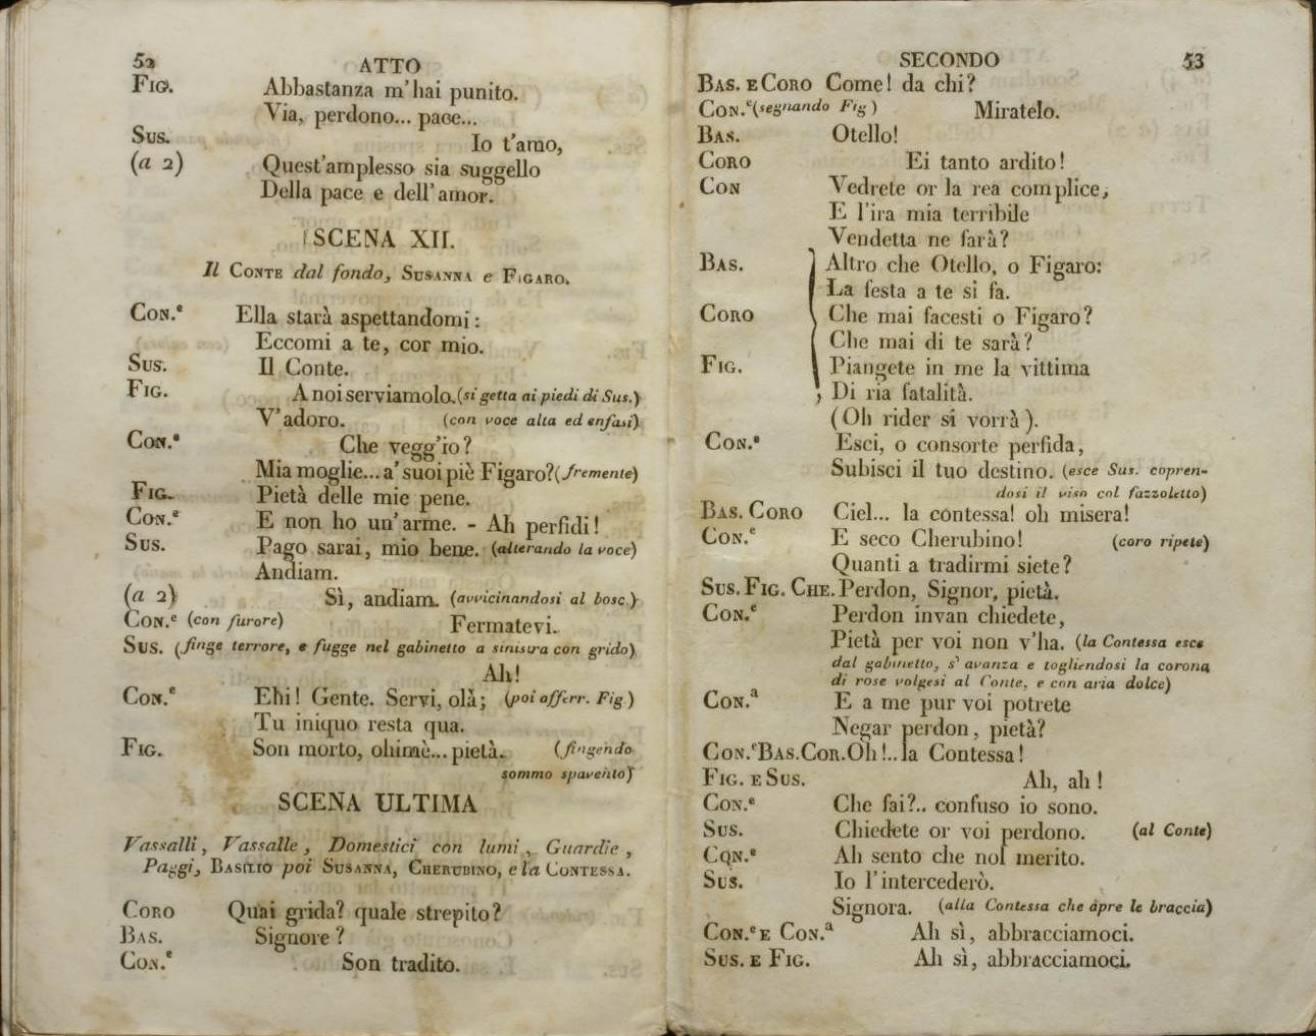 52
ATTO
FIG. Abbastanza m'hai punito.
Via, perdono... pace...
SUS. Io t'amo,
(a 2) Quest'amplesso sia suggello
Della pace e dell'amor.
SCENA XII.
Il CONTE dal fondo, SUSANNA e FIGARO.
CON.e Ella starà aspettandomi:
Eccomi a te, cor mio.
SUS. Il Conte.
FIG. A noi serviamolo. (si getta ai piedi di Sus.)
V'adoro. (con voce alta ed enfasi)
CON.e Che vegg'io?
Mia moglie... a' suoi piè Figaro? (fremente)
FIG. Pietà delle mie pene.
CON.e E non ho un'arme. - Ah perfidi!
SUS. Pago sarai, mio bene. (alterando la voce)
Andiam.
(a 2) Sì, andiam. (avvicinandosi al bosc.)
CON.e (con furore) Fermatevi.
SUS. (finge terrore, e fugge nel gabinetto a sinistra con grido)
Ah!
CON.e Ehi! Gente. Servi, olà; (poi afferr. Fig)
Tu iniquo resta qua.
FIG. Son morto, ohimè... pietà. (fingendo
sommo spavento)
SCENA ULTIMA
Vassalli, Vassalle, Domestici con lumi, Guardie,
Paggi, BASILIO poi SUSANNA, CHERUBINO, e la CONTESSA.
CORO Quai grida? quale strepito?
BAS. Signore?
CON.e Son tradito.
SECONDO
53
BAS. E CORO Come! da chi?
CON.e (segnando Fig) Miratelo.
BAS. Otello!
CORO Ei tanto ardito!
CON Vedrete or la rea complice,
E l'ira mia terribile
Vendetta ne farà?
BAS. Altro che Otello, o Figaro:
La festa a te si fa.
CORO Che mai facesti o Figaro?
Che mai di te sarà?
FIG. Piangete in me la vittima
Di ria fatalità.
(Oh rider si vorrà).
CON.e Esci, o consorte perfida,
Subisci il tuo destino. (esce Sus. copren-
dosi il viso col fazzoletto)
BAS. CORO Ciel... la contessa! oh misera!
CON.e E seco Cherubino! (coro ripete)
Quanti a tradirmi siete?
SUS. FIG. CHE. Perdon, Signor, pietà.
CON.e Perdon invan chiedete,
Pietà per voi non v'ha. (la Contessa esce
dal gabinetto, s'avanza e togliendosi la corona
di rose volgesi al Conte, e con aria dolce)
CON.a E a me pur voi potrete
Negar perdon, pietà?
CON.e BAS. COR. Oh!.. la Contessa!
FIG. E SUS. Ah, ah!
CON.e Che fai?.. confuso io sono.
SUS. Chiedete or voi perdono. (al Conte)
CON.e Ah sento che nol merito.
SUS. Io l'intercederò.
Signora. (alla Contessa che apre le braccia)
CON.e E CON.a Ah sì, abbracciamoci.
SUS. E FIG. Ah sì, abbracciamoci.